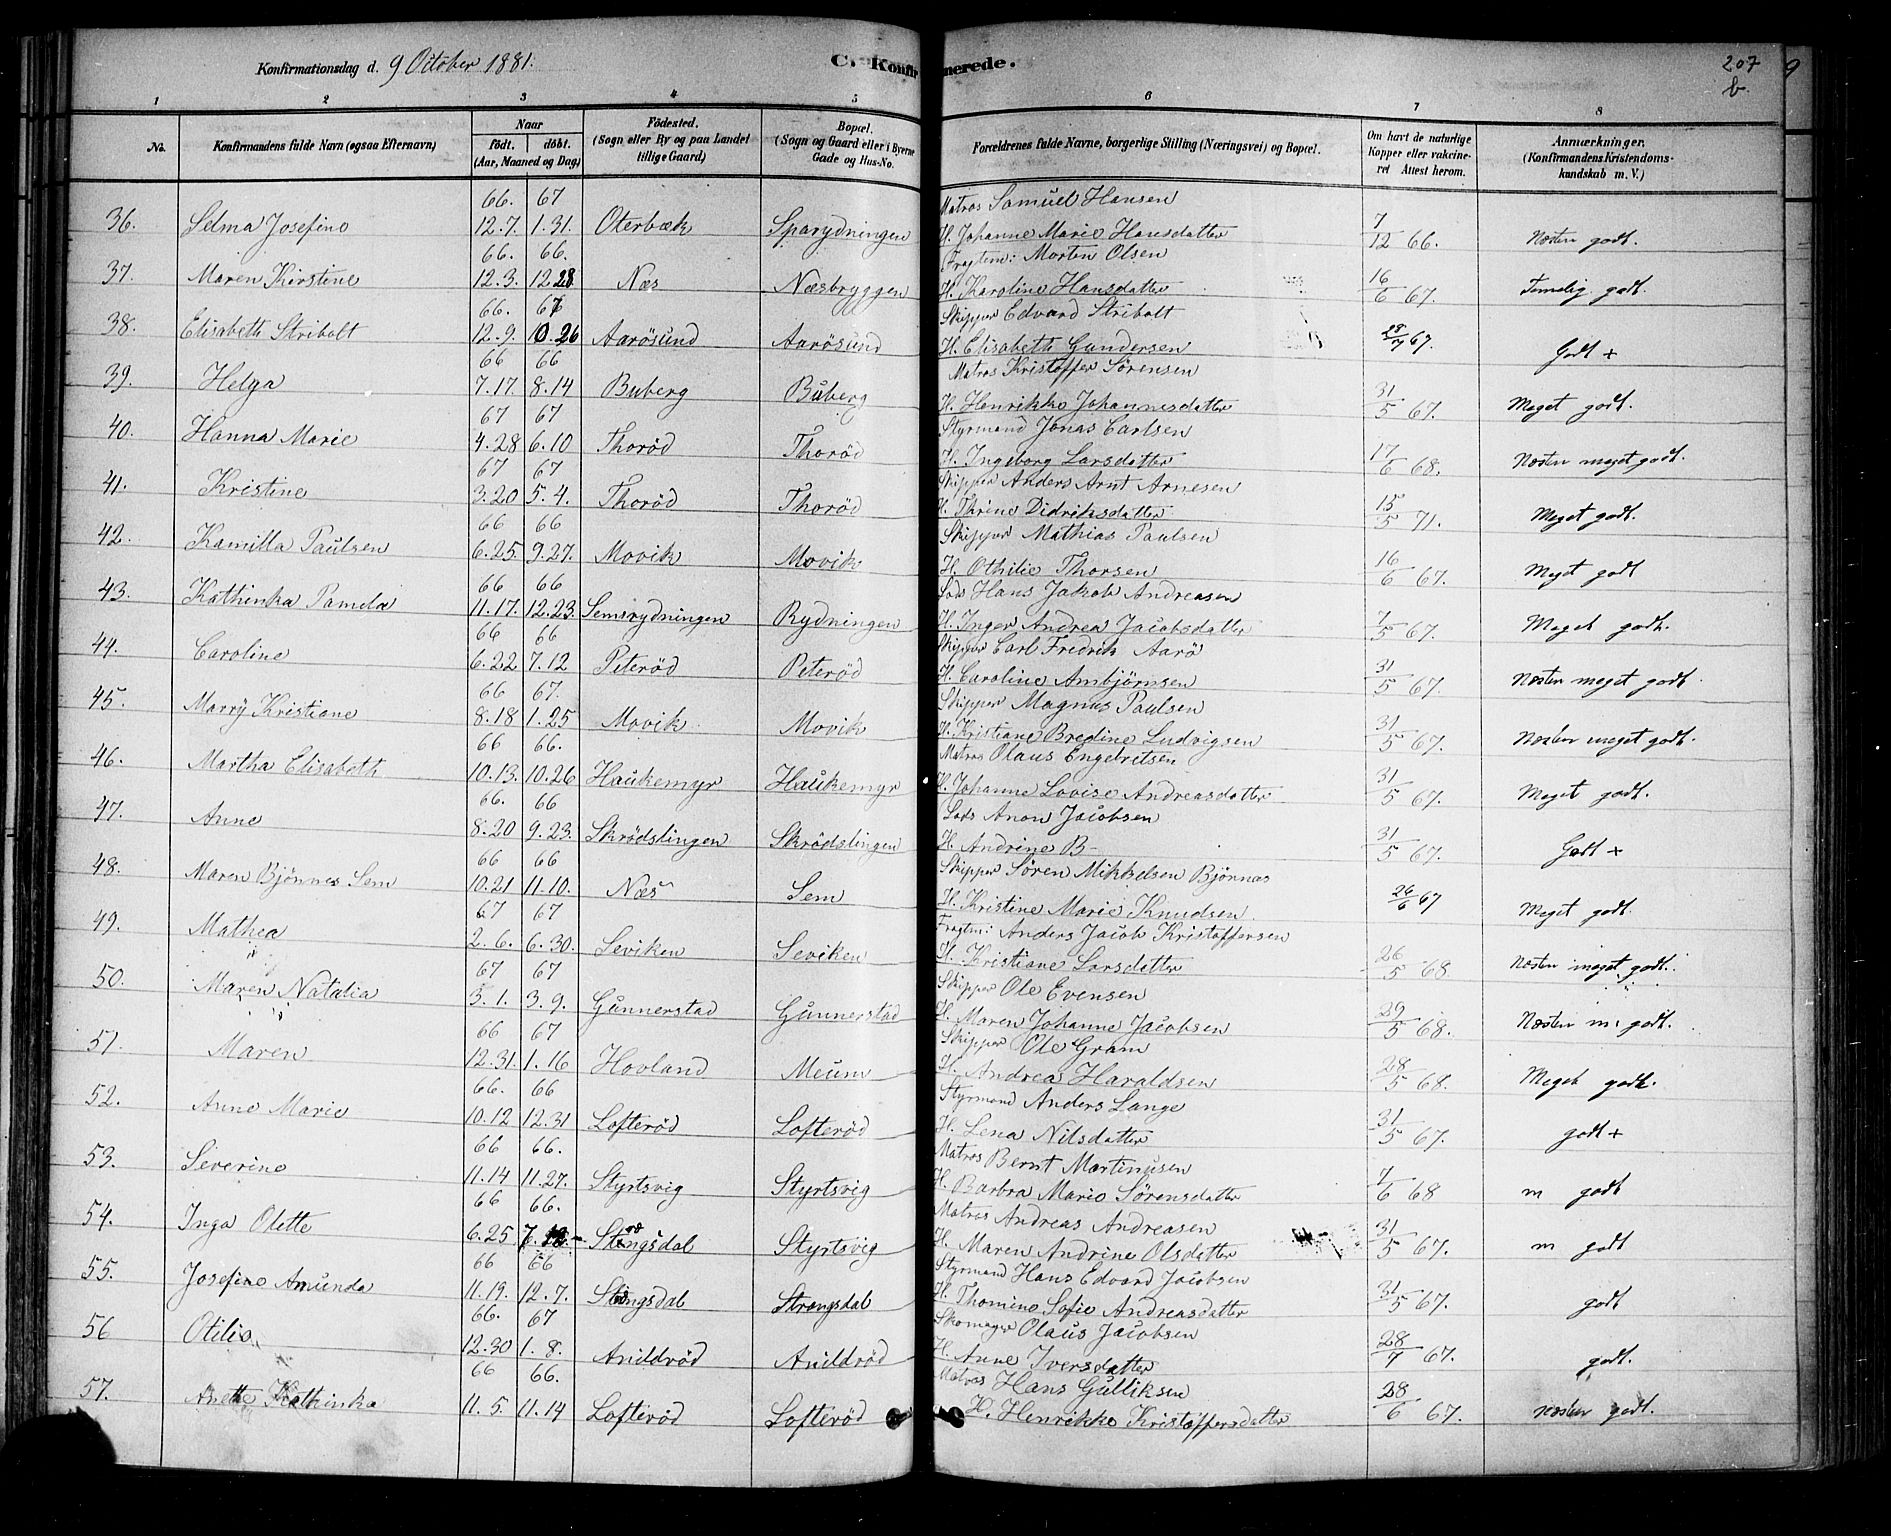 Konfirmationsdag d. 9 October 1881.
C. Konfirmerede.
207
b.
9
1 2 3 4 5 6 7 8
No.
Konfirmandens fulde Navn (ogsaa Efternavn)
Naar
födt. döbt.
(Aar, Maaned og Dag)
Födested.
(Sogn eller By og paa Landet
tillige Gaard)
Bopæl.
(Sogn og Gaard eller i Byerne
Gade og Hus-No.
Forældrenes fulde Navne, borgerlige Stilling (Næringsvei) og Bopæl.
Om havt de naturlige
Kopper eller vakcine-
ret Attest herom.
Anmærkninger.
(Konfirmandens Kristendoms-
kundskab m. V.)
66. 67 Matros Samuel Hansen
36. Selma Josefine 12.7. 1.31. Oterbæk Sparydningen H. Johanne Marie Hansdatter 7/12 66. Næsten godt.
66. 66. Fragtem: Morten Olsen
37. Maren Kirstine 12.3. 12.28 Næs Næsbryggen H. Karoline Hansdatter 16/6 67. Temelig godt.
66. 67 Skipper Edvard Stribolt
38. Elisabeth Stribolt 12.9. 10.26 Aarösund Aarösund H. Elisabeth Gundersen 28/7 67. Godt +
66 66 Matros Kristoffer Sörensen
39. Helga 7.17. 8.14 Buberg Buberg H. Henrikke Johannesdatter 31/5 67. Meget godt.
67 67 Styrmand Jonas Carlsen
40. Hanna Marie 4.28 6.10 Thoröd Thoröd H. Ingeborg Larsdatter 17/6 68. Næsten meget godt.
67 67 Skipper Anders Arnt Arnesen
41. Kristine 3.20 5.4. Thoröd Thoröd H. Thrine Didriksdatter 15/5 71. Meget godt.
66 66 Skipper Mathias Paulsen
42. Kamilla Paulsen 6.25. 9.27. Movik Movik H. Othilie Thorsen 16/6 67. Meget godt
66 66 Lods Hans Jakob Andreasen
43. Kathinka Pamela 11.17. 12.23. Semsrydningen Rydningen H. Inger Andrea Jacobsdatter 7/5 67. Meget godt.
66 66 Skipper Carl Fredrik Aarö
44. Caroline 6.22 7.12 Peteröd Peteröd H. Caroline Ambjörnsen 31/5 67. Næsten meget godt.
66 67. Skipper Magnus Paulsen
45. Marry Kristiane 8.18 1.25 Movik Movik H. Kristiane Bredine Ludvigsen 31/5 67. Næsten meget godt.
66 66. Matros Olaus Engebritsen
46. Martha Elisabeth 10.13. 10.26 Haukemyr Haukemyr H. Johanne Lovise Andreasdatter 31/5 67. Meget godt.
66. 66 Lods Anon Jacobsen
47. Anne 8.20 9.23. Skrödslingen Skrödslingen H. Andrine B- 31/5 67. Godt +
66 66 Skipper Sören Mikkelsen Björnæs
48. Maren Bjönnes Sem 10.21 11.10. Næs Sem H. Kristine Marie Knudsen 26/6 67 Meget godt.
67 67 Fragtm: Anders Jacob Kristoffersen
49. Mathea 2.6. 6.30. Seviken Seviken H. Kristiane Larsdatter 26/5 68 Næsten meget godt.
67 67 Skipper Ole Evensen
50. Maren Natalia 3.1. 3.9. Gunnerstad Gunnerstad H. Maren Johanne Jacobsen 29/5 68. Næsten m: godt.
66 67 Skipper Ole Gram
51. Maren 12.31. 1.16 Hovland Meum H. Andrea Haraldsen 28/5 68. Meget godt.
66. 66 Styrmand Anders Lange
52. Anne Marie 10.12 12.31 Lofteröd Lofteröd H. Lena Nilsdatter 31/5 67. godt +
66 66. Matros Bernt Martinusen
53. Severine 11.14 11.27. Styrtsvig Styrtsvig H. Barbra Marie Sörensdatter 7/6 68 m godt
66 66. Matros Andreas Andreasen
54. Inga Olette 6.25 Stangsdal Styrtsvig H. Maren Andrine Olsdatter 31/5 67. m godt
66 66 Styrmand Hans Edvard Jacobsen
55. Josefine Amunda 11.19. 12.7. Strangsdal H. Thomine Sofie Andreasdatter 31/5 67. godt
66. 67 Skomager Olaus Jacobsen
56 Otilie 12.30 1.8. Anildröd Anildröd H. Anne Iversdatter 28/7 67. godt.
66 66. Matros Hans Gulliksen
57. Anette Kathinka 11.5. 11.14 Lofteröd Lofteröd H. Henrikke Kristoffersdatter 28/6 67. næsten godt.